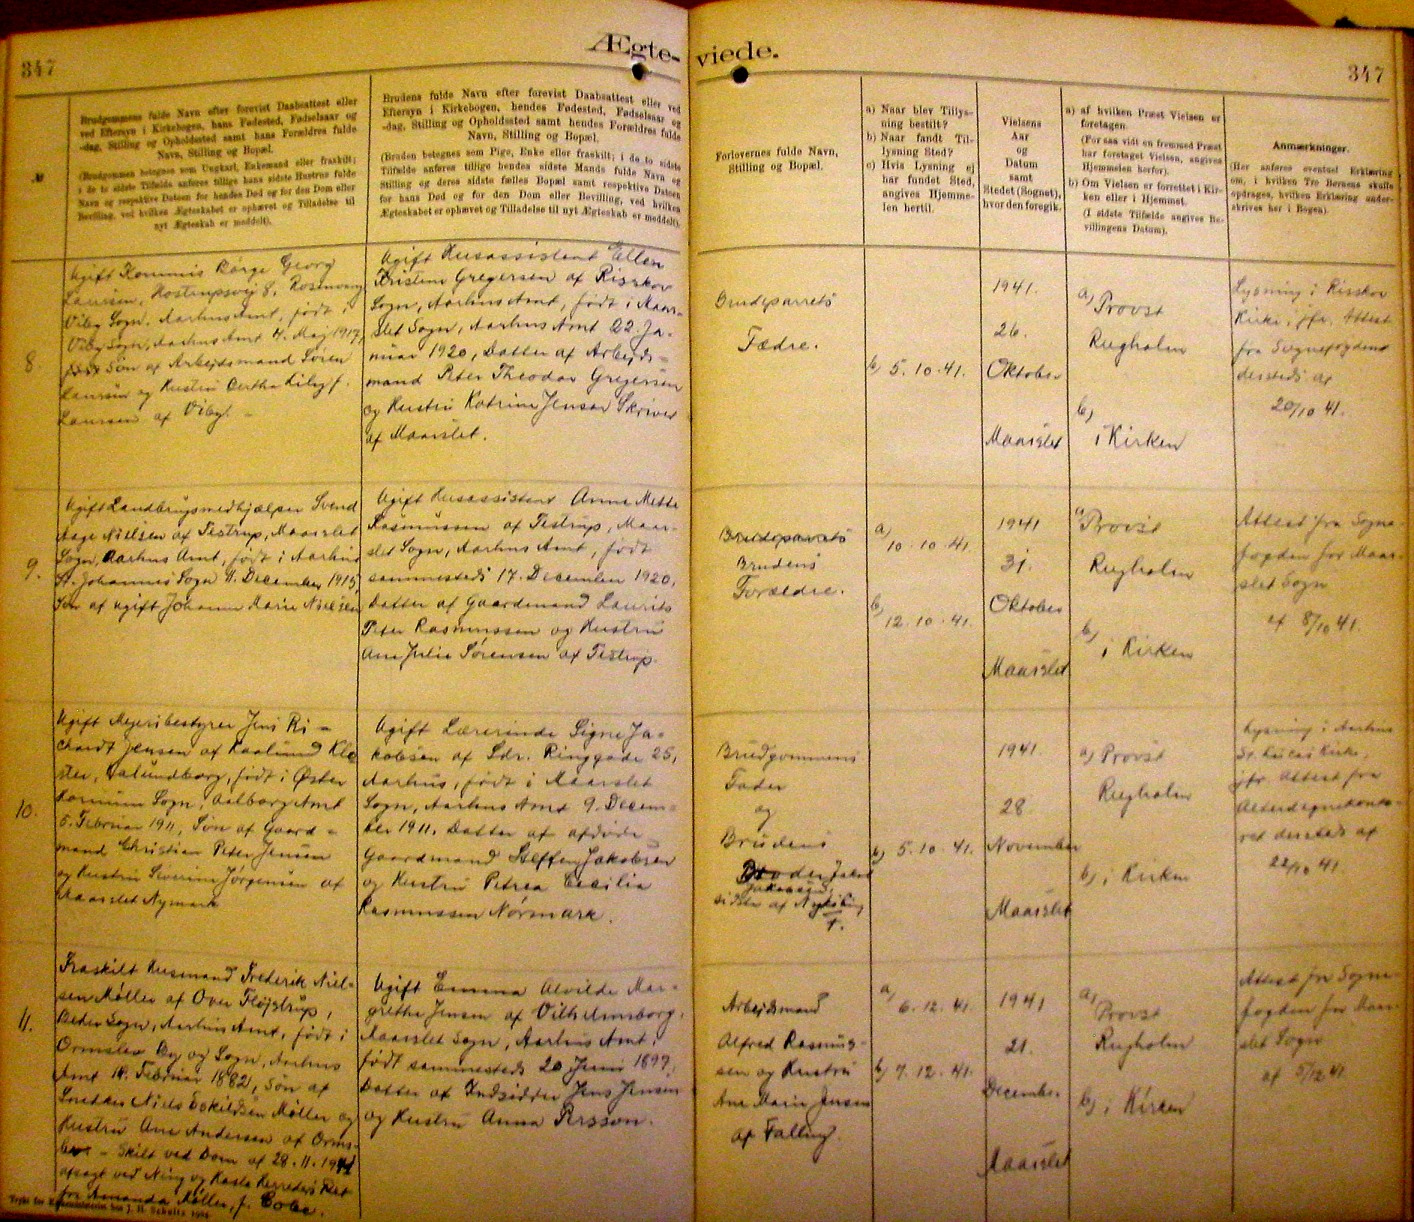 347
Ægte-
viede.
347
№
Brudgommens fulde Navn efter forevist Daabsattest eller
ved Eftersyn i Kirkebogen, hans Fødested, Fødselsaar og
-dag, Stilling og Opholdssted samt hans Forældres fulde
Navn, Stilling og Bopæl.
(Brudgommen betegnes som Ungkarl, Enkemand eller fraskilt;
i de to sidste Tilfælde anføres tillige hans sidste Hustrus fulde
Navn og respektive Datoen for hendes Død og for den Dom eller
Bevilling, ved hvilken Ægteskabet er ophævet og Tilladelse til
nyt Ægteskab er meddelt).
Brudens fulde Navn efter forevist Daabsattest eller ved
Eftersyn i Kirkebogen, hendes Fødested, Fødselsaar og
-dag, Stilling og Opholdssted samt hendes Forældres fulde
Navn, Stilling og Bopæl.
(Bruden betegnes som Pige, Enke eller fraskilt; i de to sidste
Tilfælde anføres tillige hendes sidste Mands fulde Navn og
Stilling og deres sidste fælles Bopæl samt respektive Datoen
for hans Død og for den Dom eller Bevilling, ved hvilken
Ægteskabet er ophævet og Tilladelse til nyt Ægteskab er meddelt).
Forlovernes fulde Navn,
Stilling og Bopæl.
a) Naar blev Tillys-
ning bestilt?
b) Naar fandt Til-
lysning Sted?
c) Hvis Lysning ej
har fundet Sted,
angives Hjemme-
len hertil.
Vielsens
Aar
og
Datum
samt
Stedet (Sognet),
hvor den foregik.
a) af hvilken Præst Vielsen er
foretagen.
(For saa vidt en fremmed Præst
har foretaget Vielsen, angives
Hjemmelen herfor).
b) Om Vielsen er forrettet i Kir-
ken eller i Hjemmet.
(I sidste Tilfælde angives Be-
villingens Datum).
Anmærkninger.
(Her anføres eventuel Erklæring
om, i hvilken Tro Børnene skulle
opdrages, hvilken Erklæring under-
skrives her i Bogen).
8.
Ugift Kommis Børge Georg
Laursen, Kostrupsvej 8, Rosenvang
Viby Sogn, Aarhus Amt, født i
Viby Sogn, Aarhus Amt 4. Maj 1917,
Søn af Arbejdsmand Søren
Laursen og Hustru Bertha Kiley f.
Laursen af Viby. -
Ugift Husassistent Ellen
Kristine Gregersen af Risskov
Sogn, Aarhus Amt, født i Maar-
slet Sogn, Aarhus Amt 22. Ja-
nuar 1920, Datter af Arbejds-
mand Peter Theodor Gregersen
og Hustru Katrine Jensen Skriver
af Maarslet.
Brudeparrets
Fædre.
b) 5.10.41.
1941.
26.
Oktober
Maarslet
a) Provst
Rugholm
b)
i Kirken
Lysning i Risskov
Kirke, jfr. Attest
fra Sognefogden
dersteds af
20/10 41.
9.
Ugift Landbrugsmedhjælper Svend
Aage Nielsen af Testrup, Maarslet
Sogn, Aarhus Amt, født i Aarhus
St. Johannes Sogn 11. December 1915,
Søn af ugift Johanne Marie Nielsen
Ugift Husassistent Anna Mette
Rasmussen af Testrup, Maar-
slet Sogn, Aarhus Amt, født
sammesteds 17. December 1920,
Datter af Gaardmand Laurits
Peter Rasmussen og Hustru
Ane Julie Sørensen af Testrup.
Brudeparrets
Brudens
Forældre.
a)
10.10.41
b)
12.10.41.
1941
31.
Oktober
Maarslet
a) Provst
Rugholm
b)
i Kirken
Attest fra Sogne-
fogden for Maar-
slet Sogn
af 8/10 41.
10.
Ugift Mejeribestyrer Jens Ri-
chardt Jensen af Kaalund Klo
ster, Kalundborg, født i Øster
Kornum Sogn, Aalborg Amt
5. Februar 1911, Søn af Gaard-
mand Christian Peter Jensen
og Hustru Severine Jørgensen af
Maarslet Nymark
Ugift Lærerinde Signe Ja-
kobsen af Sdr. Ringgade 25,
Aarhus, født i Maarslet
Sogn, Aarhus Amt 9. Decem-
ber 1911, Datter af afdøde
Gaardmand Steffen Jakobsen
og Hustru Petrea Cecilia
Rasmussen Nørmark.
Brudgommens
Fader
og
Brudens
Broder Jakob
Jakobsen,
af Nykøbing
F.
b) 5.10.41.
1941.
28.
November
Maarslet
a) Provst
Rugholm
b) i Kirken
Lysning i Aarhus
St. Lucas Kirke,
jfr. Attest fra
dersteds af
22/10 41.
11.
Fraskilt Husmand Frederik Niel-
sen Møller af Over Fløjstrup,
Beder Sogn, Aarhus Amt, født i
Ormslev By og Sogn, Aarhus
Amt 14. Februar 1882, Søn af
Smeden Niels Eskildsen Møller og
Hustru Ane Andersen af Orms-
lev - Skilt ved Dom af 28.11.1941
afsagt ved Ning og Hasle Herreders Ret
fra Amanda Møller, f.
Ugift Emma Alvilde Mar-
grethe Jensen af Vilhelmsborg,
Maarslet Sogn, Aarhus Amt,
født sammesteds 20 Juni 1897,
Datter af Indsidder Jens Jensen
og Hustru Anna Persson.
Arbejdsmand
Alfred Rasmus-
sen og Hustru
Ane Marie Jensen
af Falling.
a)
6.12.41.
b) 7.12.41.
1941
21.
December
Maarslet
a)
Provst
Rugholm
b) i Kirken
Attest fra Sogne-
fogden for Maar-
slet Sogn
af 5/12 41